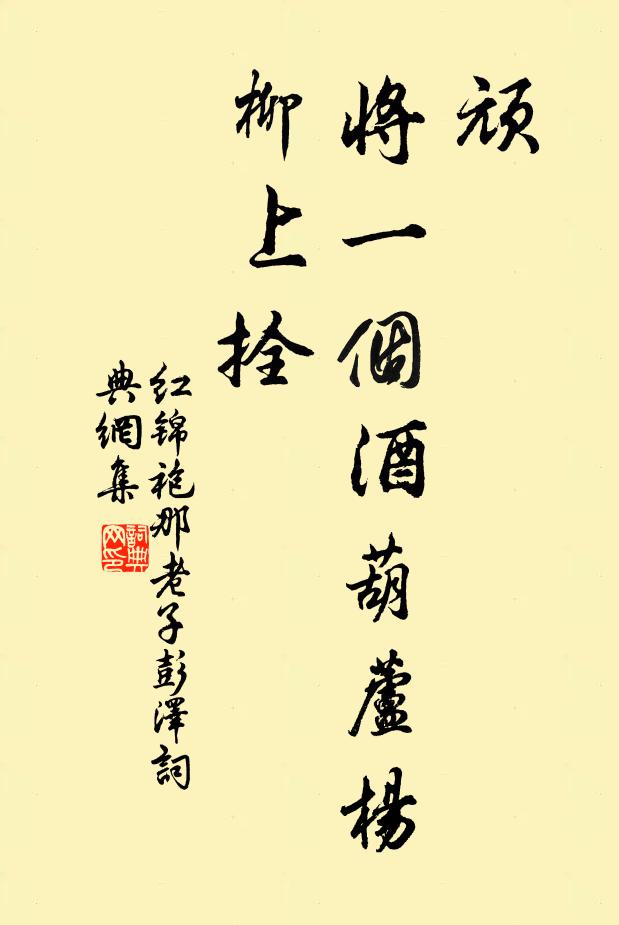 頑
將一個酒葫蘆楊
柳上拴
红锦袍那老子彭澤詞
典網集
詞典
网印